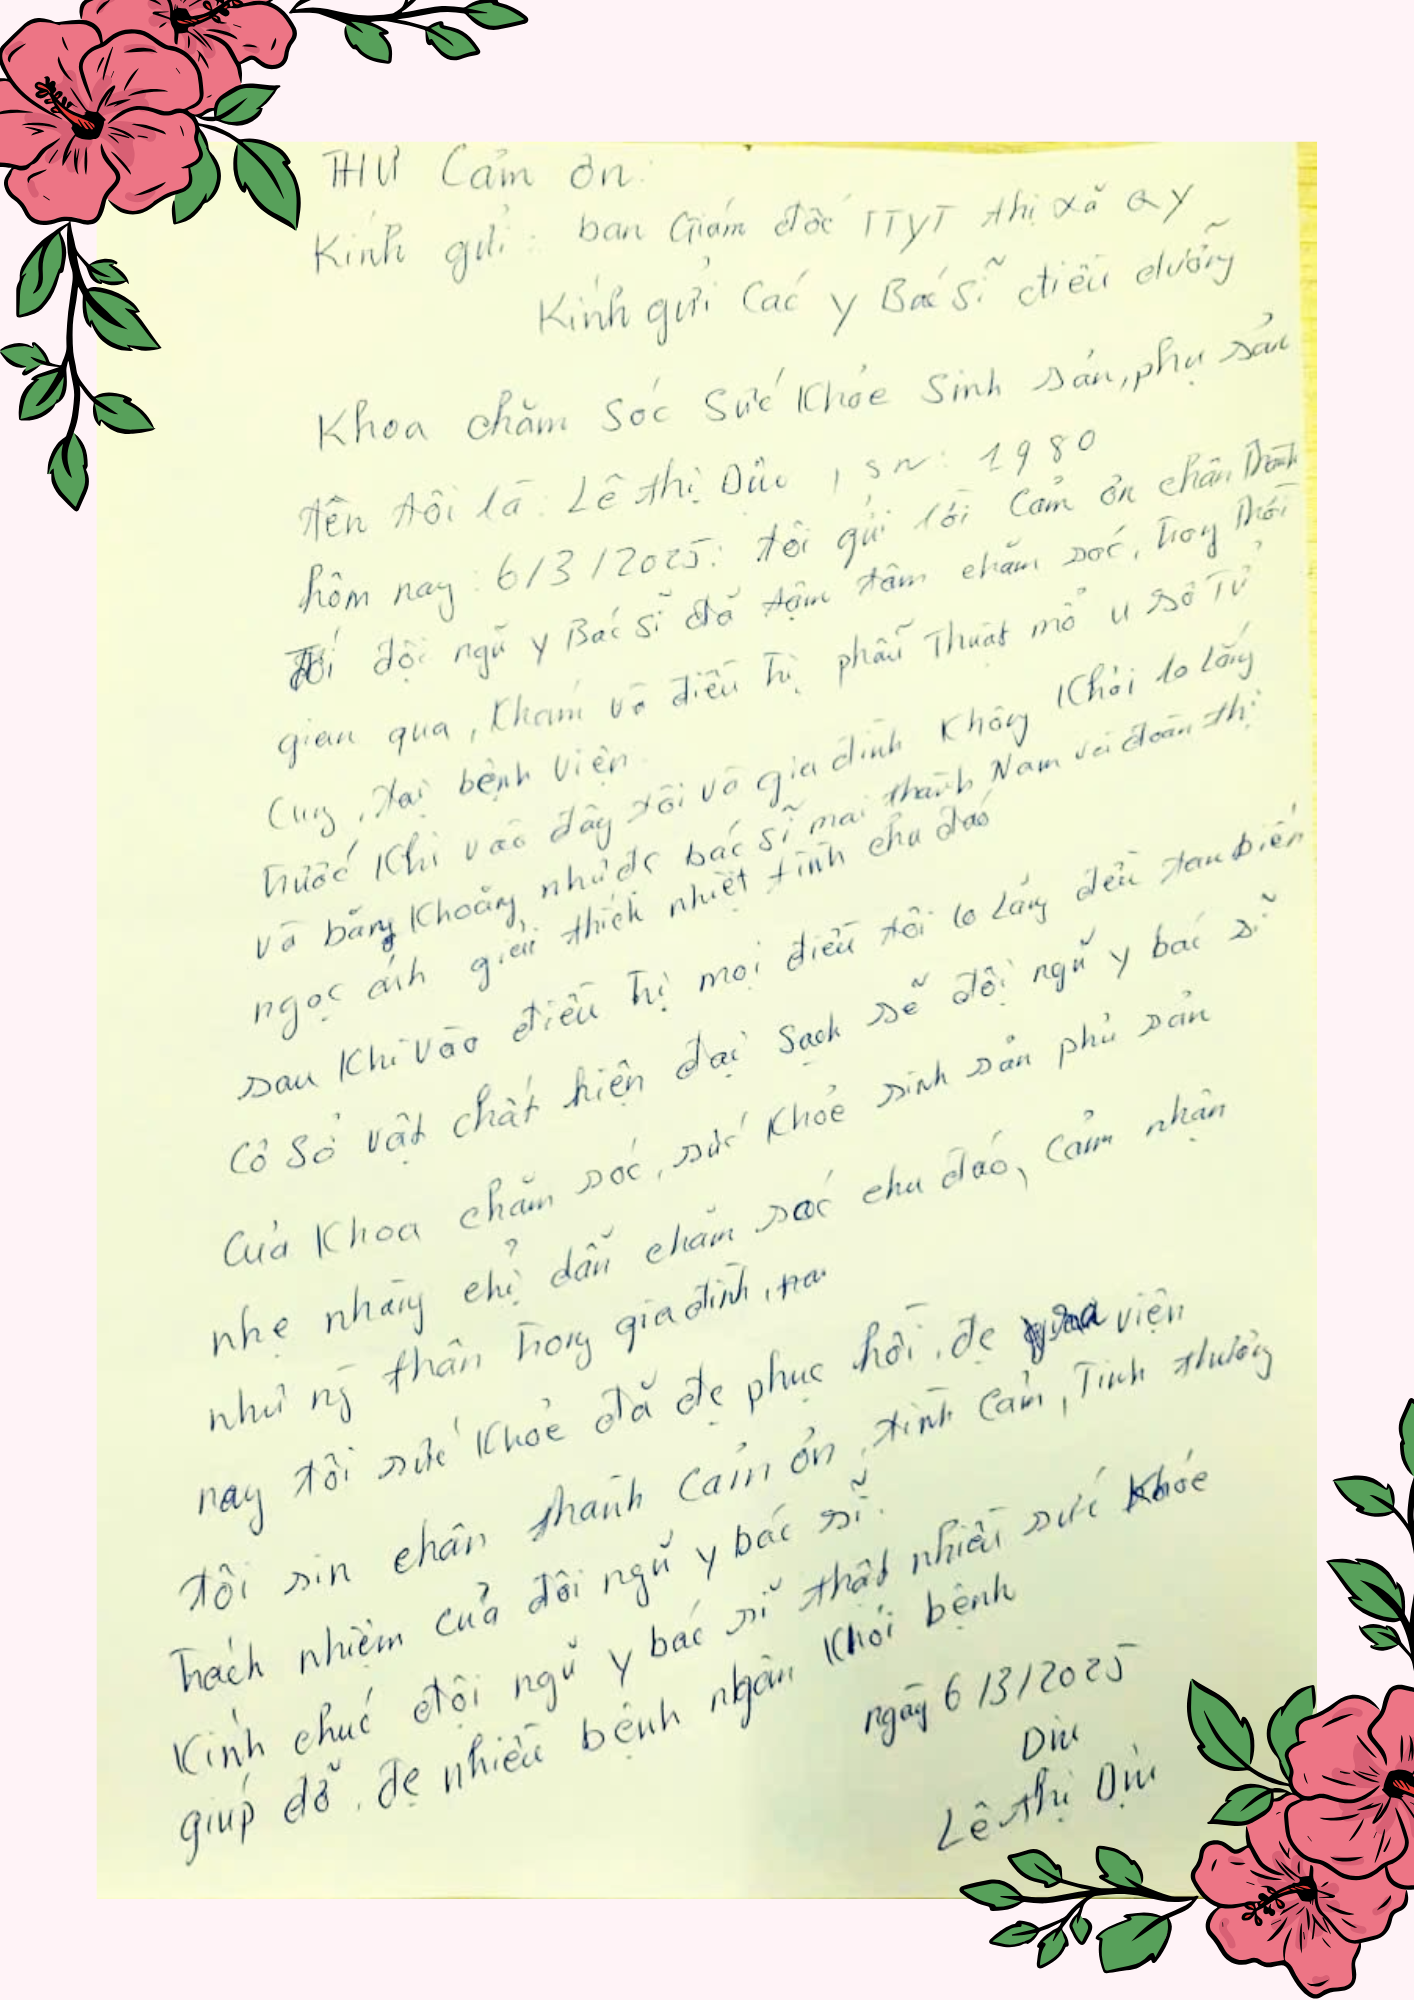 THƯ Cảm ơn:
Kính gửi: ban Giám đốc TTYT thị xã QY
Kính gửi Các y Bác sĩ điều dưỡng
Khoa chăm sóc sức khỏe sinh sản, phụ sản
tên tôi là: Lê thị Dịu, SN: 1980
hôm nay: 6/3/2025: tôi gửi lời cảm ơn chân thành
tới đội ngũ y Bác sĩ đã tậm tâm chăm sóc, trong thời
gian qua, khám và điều trị phẫu thuật mổ u sơ Tử
Cung, tại bệnh viện.
trước khi vào đây tôi và gia đình không khỏi lo lắng
và băng khoăng như đc bác sĩ mai thành Nam và đoàn thị
ngọc ánh giải thích nhiệt tình chu đáo
sau khi vào điều trị mọi điều tôi lo lắng đều tan biến
Cơ Sở vật chất hiện đại sạch sẽ đội ngũ y bác sĩ
Của khoa chăm sóc, sức khỏe sinh sản phủ sản
nhẹ nhàng chỉ dẫn chăm sóc chu đáo, cảm nhận
như ng thân trong gia đình,
nay tôi sức khỏe đã đc phục hồi, đc viện
tôi sin chân thành cảm ơn, tình cảm, tinh thưởng
trách nhiệm của đội ngũ y bác sĩ.
Kính chúc đội ngũ y bác sĩ thật nhiều sức khỏe
giúp đỡ, đc nhiều bệnh nhân khỏi bệnh
ngày 6/3/2025
Dịu
Lê thị Dịu